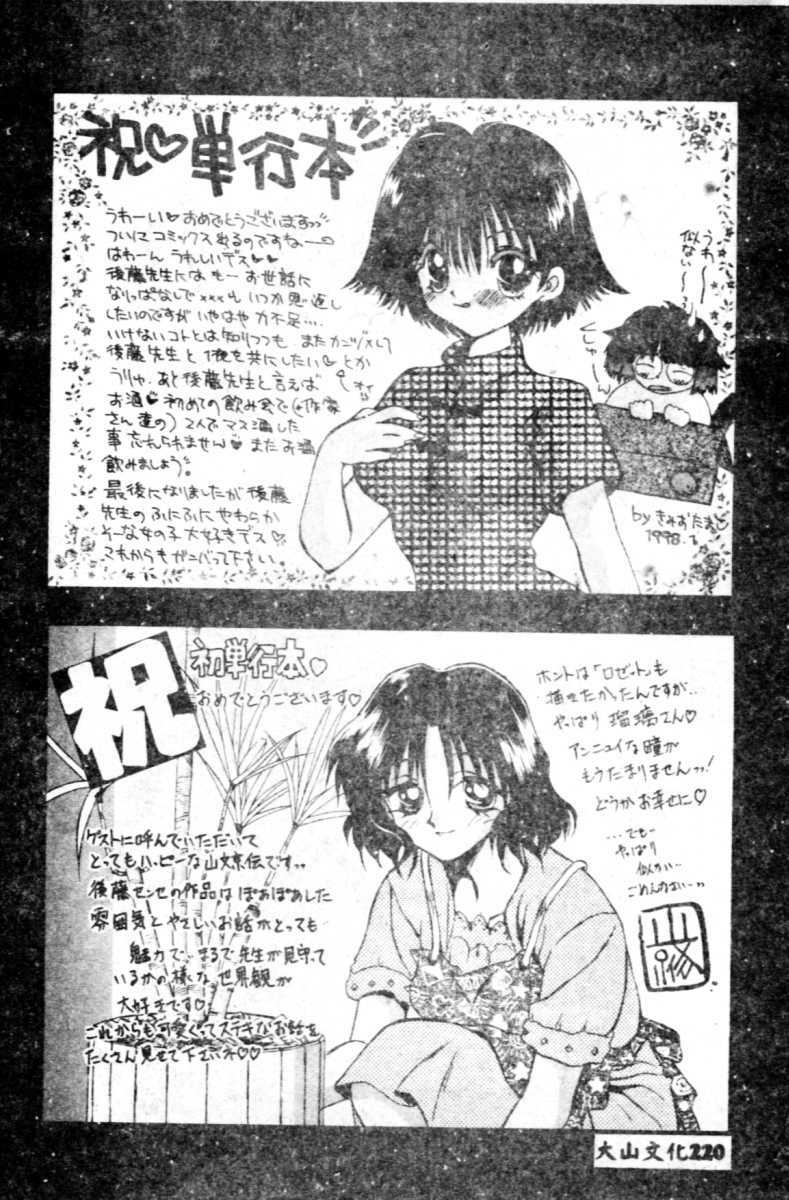 祝♡単行本
うわーい♡おめでとうございますっっ
ついにコミックス出るのですねー♡
はわーん うれしいデス♡♡
後藤先生には もー お世話に
なりっぱなしで×××も いつか恩返し
したいのですが いやはや 力不足…
いけないコトとは知りつつも また
後藤先生と 1夜を共にしたい♡ とか
うりゃ。あと後藤先生と言えば
お酒♥ 初めての飲み会で (作家
さん達の) 2人でマス酒した
事忘れられません♡ またお酒
飲みましょう。
最後になりましたが 後藤
先生の ふにふに やわらか
そーな女の子 大好きデス♡
これからもがんばって下さい。
うわ〜
似ない〜
by きみおたまこ
1998.1
祝
初単行本♡
おめでとうございます♡
ホントは「ロゼット」も
描きたかったんですが…
やっぱり 瑠璃さん♡
アンニュイな瞳が
もうたまりませんっっ!
どうかお幸せに♡
…でもー
やっぱり
似ない…
ごめんなさいーっっ
ゲストに呼んでいただいて
とってもハッピーな山文京伝ですっっ
後藤センセの作品は ぽあぽあした
雰囲気と やさしいお話が とっても
魅力で… まるで 先生が見守って
いるかの様な 世界観が
大好きです♡
これからも可愛くってステキなお話を
たくさん見せて下さいネ♡♡
大山文化220